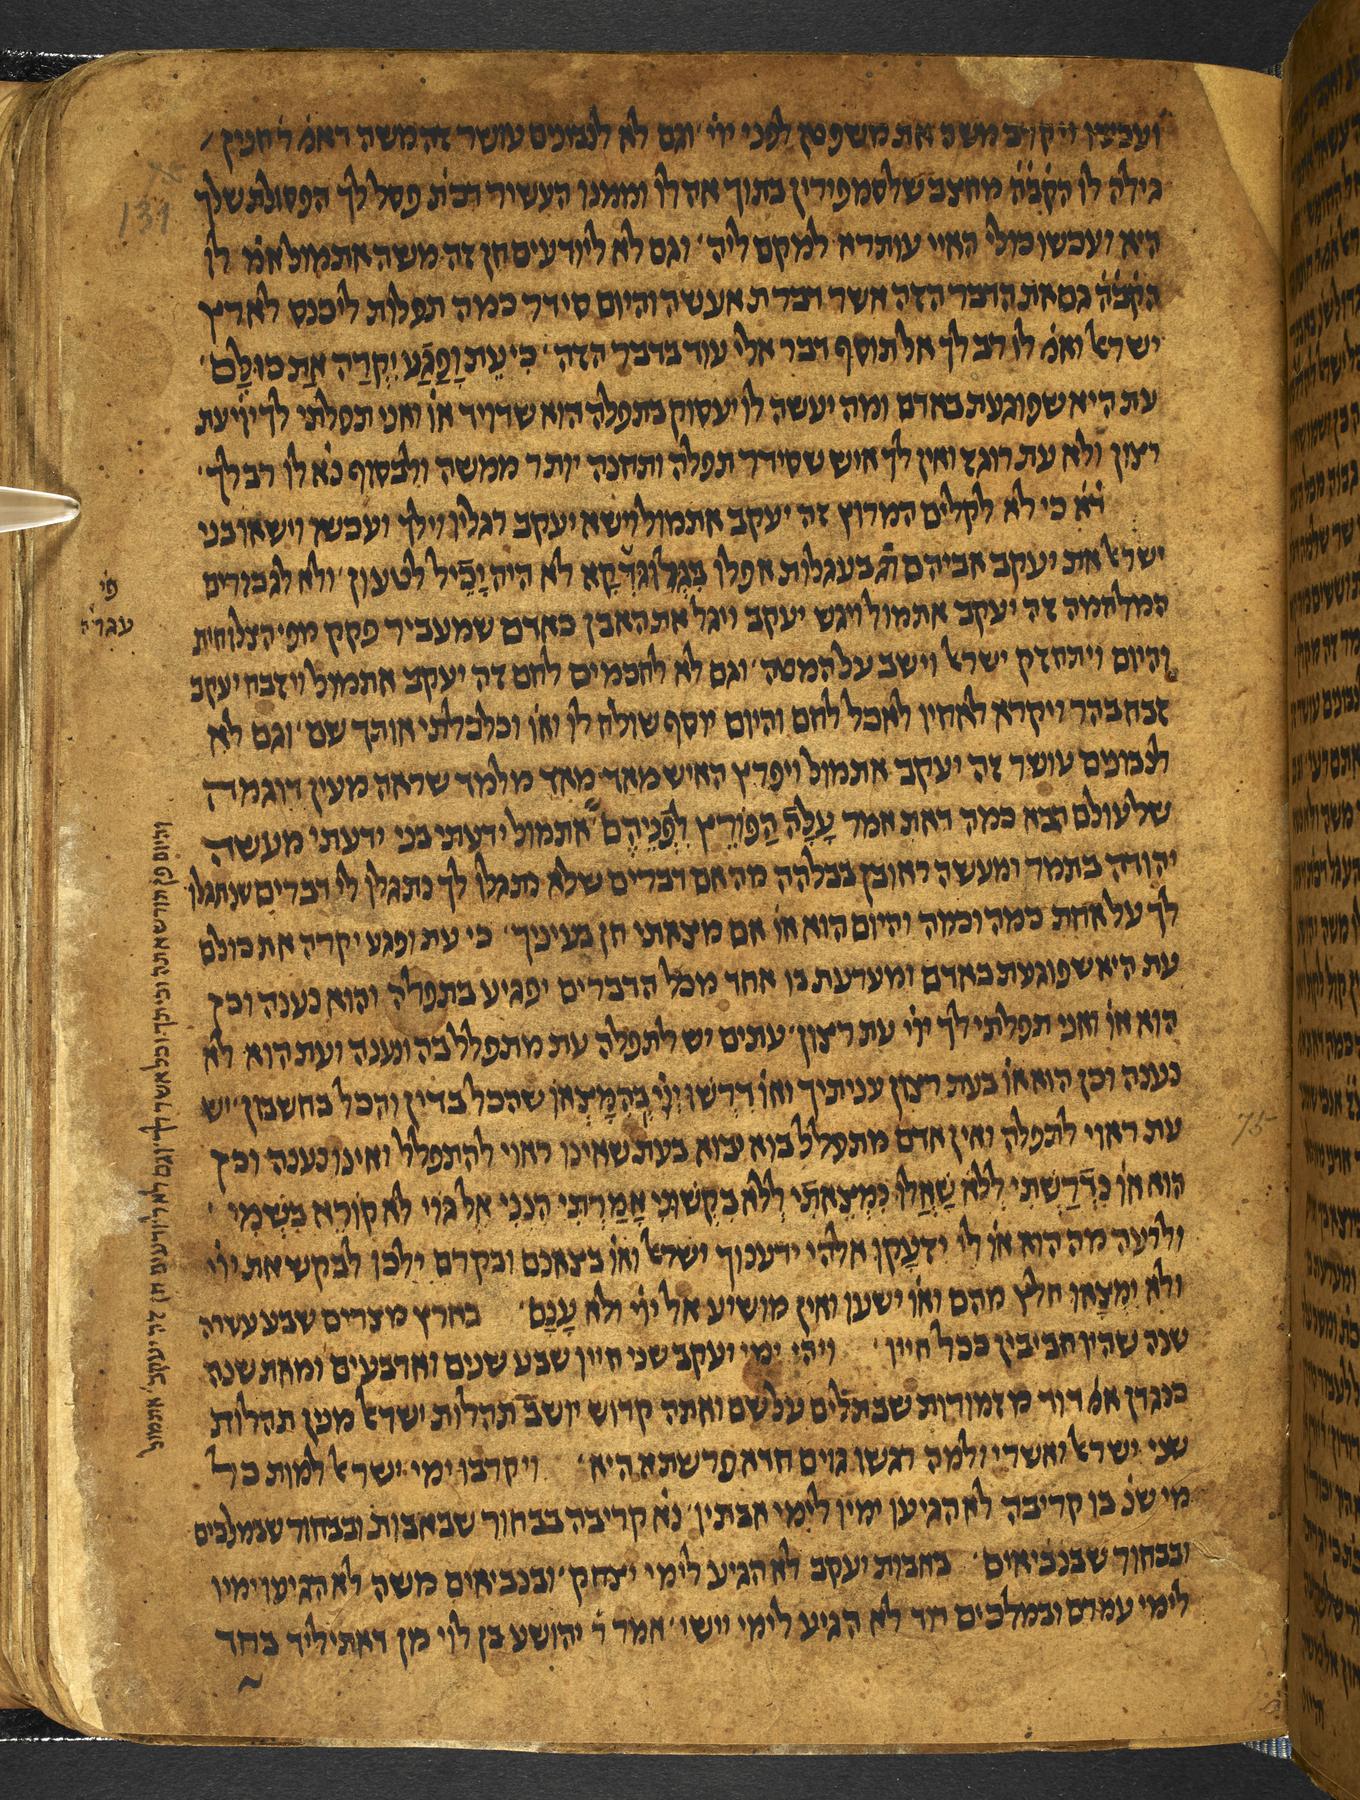 ועכשיו ויקרב משה את משפטן לפני ייי׳ וגם לא לנבונים עושר זה משה דאמ׳ ר׳ חנין
גילה לו הקב״ה מחצב שלסמפירין בתוך אהלו וממנו העשיר דכת׳ פסל לך הפסולת שלך
היא ועכשו כולי האיי עותרא למקם ליה׳ וגם לא ליודעים חן זה משה אתמול אמ׳ לו
הקב״ה גם את הדבר הזה אשר דברת אעשה והיום סידר כמה תפלות ליכנס לארץ
ישראל ואמ׳ לו רב לך אל תוסף דבר אלי עוד בדבר הזה׳ כי עֵת וָפֶגַע יִקְרֶה אֶת כּוּלָּם׳
עת היא שפוגעת באדם ומה יעשה לו יעסוק בתפלה הוא שדויד או׳ ואני תפלתי לך ייי עת
רצון ולא עת רוגז ואין לך איש שסידר תפלה ותחנה יותר ממשה ולבסוף נא׳ לו רב לך׳
ד״א כי לא לקלים המרוץ זה יעקב אתמול וישא יעקב רגליו וילך ועכשו וישאו בני
ישראל את יעקב אביהם בעגלות אפלו בגלוגדקא לא היה יָכֵיל לטעון׳ ולא לגבורים
המלחמה זה יעקב אתמול ויגש יעקב ויגל את האבן כאדם שמעביר פקק מפי הצלוחית
והיום ויתחזק ישראל וישב על המטה׳ וגם לא לחכמים לחם זה יעקב אתמול ויזבח יעקב
זבח בהר ויקרא לאחיו לאכל לחם והיום יוסף שולח לו ואו׳ וכלכלתי אותך שם׳ וגם לא
לנבונים עושר זה יעקב אתמול ויפרץ האיש מאד מאד מלמד שראה מעין דוגמה
של עולם הבא כמה דאת אמר עָלָה הַפּוֹרֵץ לִפְנֵיהֶם אתמול ידעתי בני ידעתי מעשה
יהודה בתמר ומעשה ראובן בבלהה מה אם דברים שלא נתגלו לך נתגלו לי דברים שנתגלו
לך על אחת כמה וכמה והיום הוא או׳ אם מצאתי חן בעיניך׳ כי עת ופגע יקרה את כולם
עת היא שפוגעת באדם ומערעת בו אחד מכל הדברים יפגיע בתפלה והוא נענה וכן
הוא או׳ ואני תפלתי לך ייי עת רצון׳ עתים יש לתפלה עת מתפלל בה ונענה ועת הוא לא
נענה וכן הוא או׳ בעת רצון עניתיך ואו׳ דִּרְשׁוּ ייי בְּהִמָּצְאוֹ שהכל בדין והכל בחשבון׳ יש
עת ראוי לתפלה ואין אדם מתפלל בוא יבוא בעת שאינו ראוי להתפלל ואינו נענה וכן
הוא או׳ נִדְרַשְׁתִּי לְלֹא שָׁאֲלוּ נִמְצֵאתִי לְלֹא בִקְשֻׁנִי אָמַרְתִּי הִנֵּנִי אֶל גּוֹי לֹא קוֹרָא בִשְׁמִי׳
ולרעה מה הוא או׳ לי יזעקו אלהי ידענוך ישראל ואו׳ בצאנם ובקרם ילכון לבקש את ייי
ולא ימצאו חלץ מהם ואו׳ ישעו ואין מושיע אל ייי ולא עָנָם׳ בארץ מצרים שבע עשרה
שנה שהיו חביבין בכל חייו׳ ויהי ימי יעקב שני חייו שבע שנים וארבעים ומאת שנה
כנגדן אמ׳ דוד מזמורות שבתלים ואתה קדוש יושב תהלות ישראל מנין תהלות
שני ישראל ואשרי ולמה רגשו גוים חדא פרשתא היא׳ ויקרבו ימי ישראל למות כל
מי שנ׳ בו קריבה לא הגיעו ימיו לימי אבתיו׳ נא׳ קריבה בבחור שבאבות ובבחור שבמלכים
ובבחור שבנביאים׳ באבות יעקב לא הגיע לימי יצחק׳ ובנביאים משה לא הגיעו ימיו
לימי עמרם ובמלכים דוד לא הגיע לימי יישי׳ אמר ר׳ יהושע בן לוי מן דאתיליד בחד
פי׳
עגלה
והיום פן תורש אתה וביתך וכל אשר לך׳ וגם לא ליודעים חן זה יעקב׳ אתמול
131
75